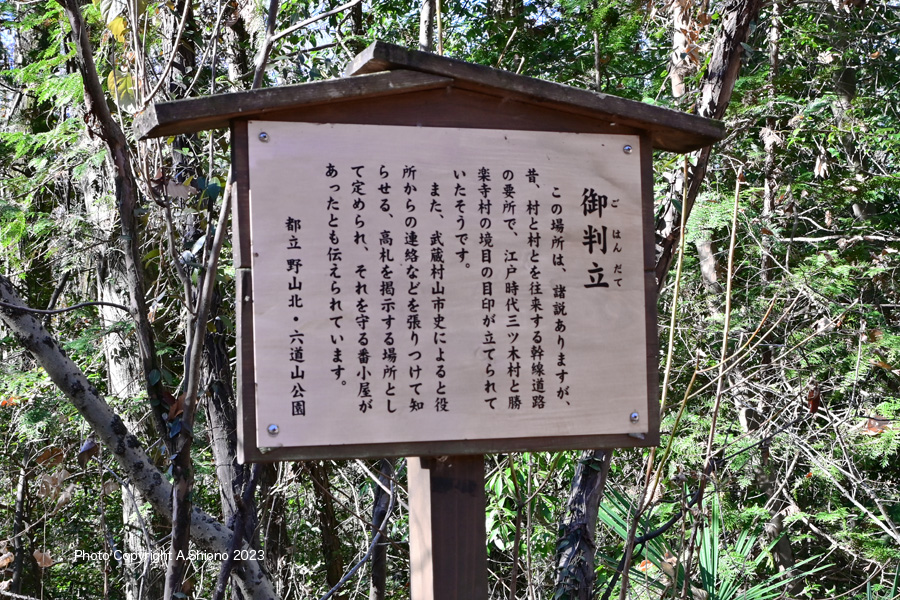 御判立
ごはんだて
この場所は、諸説ありますが、
昔、村と村とを往来する幹線道路
の要所で、江戸時代三ツ木村と勝
楽寺村の境目の目印が立てられて
いたそうです。
また、武蔵村山市史によると役
所からの連絡などを張りつけて知
らせる、高札を掲示する場所とし
て定められ、それを守る番小屋が
あったとも伝えられています。
都立 野山北・六道山公園
Photo Copyright A.Shieno 2023